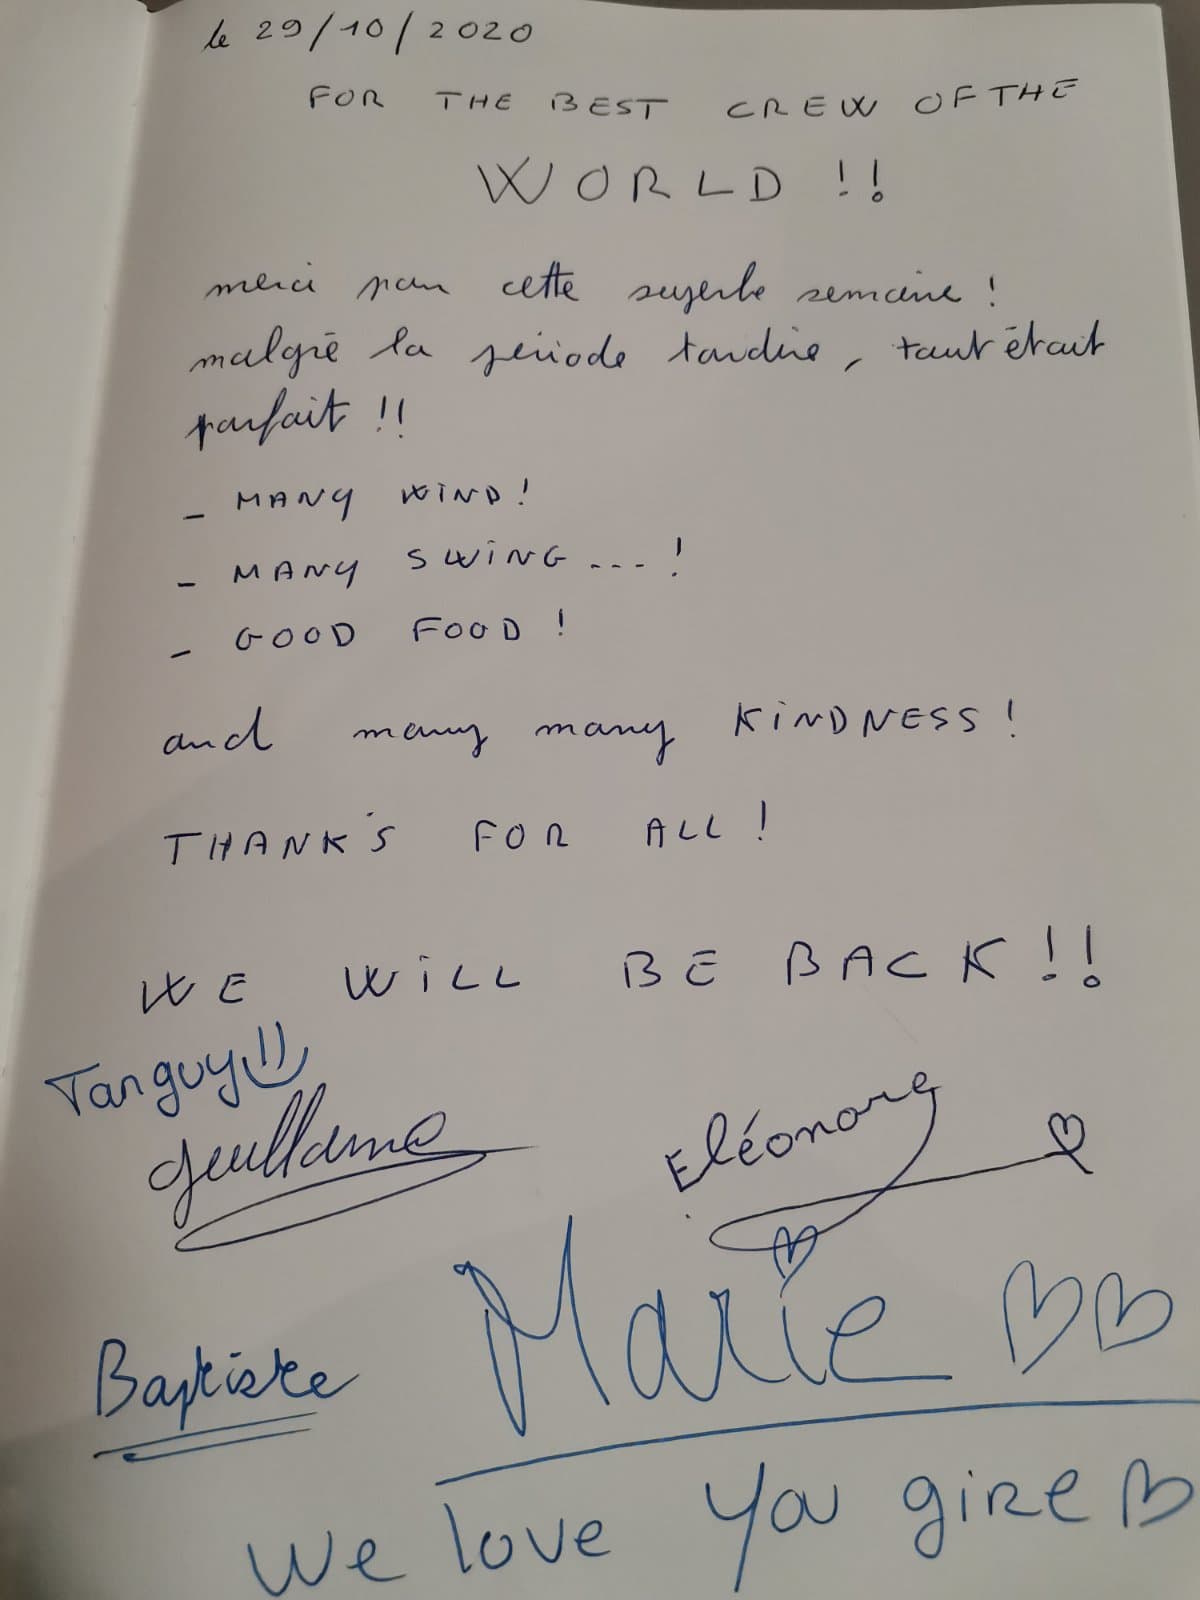 le 29/10/2020
FOR THE BEST CREW OF THE
WORLD !!
merci pour cette superbe semaine !
malgré la période tardive, tout était
parfait !!
- MANY WIND !
- MANY SWING ... !
- GOOD FOOD !
and many many KINDNESS !
THANK'S FOR ALL !
WE WILL BE BACK !!
Tanguy
Guillame
Eléonore
Marie
Baptiste
We love you gire